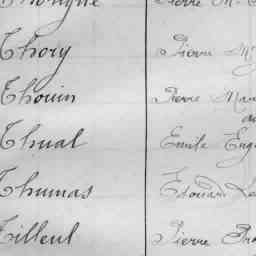 Thory Pierre M
Thouin Pierre Mar
Thual Emile Eug
Thumas Edouard Le
Tilleul Pierre Fra